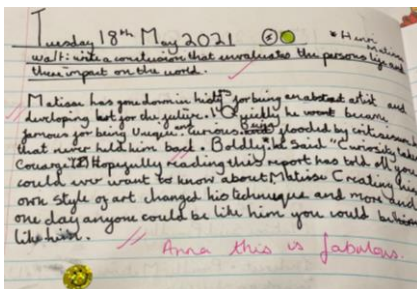 Tuesday 18th May 2021
* Henri Matisse
walt: write a conclusion that evaluates the persons life and
their impact on the world.
Matisse has gone down in history for being an abstract artist and
developing art for the future. Quickly he went became
famous for being unique and curious flooded by criticism
that never held him back. Boldly, he said "Curiosity takes
Courage." Hopefully reading this report has told all you
could ever want to know about Matisse Creating his
own style of art changed his technique and more and
one day anyone could be like him you could be
like him.
Anna this is fabulous.